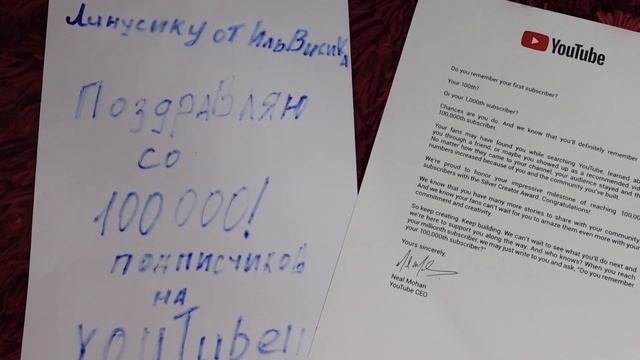 Линусику от ИльВисика
Поздравляю
со
100 000!
подписчиков
на
YouTubeп
YouTube
Do you remember your first subscriber?
Your 100th?
Or your 1,000th subscriber?
Chances are you do. And we know that you'll definitely remember
100,000th subscriber.
Your fans may have found you while searching YouTube, learned ab
you through a friend, or maybe you showed up as a recommended vid
No matter how they came to your channel, your audience stayed and
numbers increased because of you and the community you've built.
We're proud to honor your impressive milestone of reaching 100,00
subscribers with the Silver Creator Award. Congratulations!
We know that you have many more stories to share with your community
And we know your fans can't wait for you to amaze them even more with your
commitment and creativity.
So keep creating. Keep building. We can't wait to see what you'll do next and
we're here to support you along the way. And who knows? When you reach
your millionth subscriber, we may just write to you and ask, "Do you remember
your 100,000th subscriber?"
Yours sincerely,
Neal Mohan
YouTube CEO